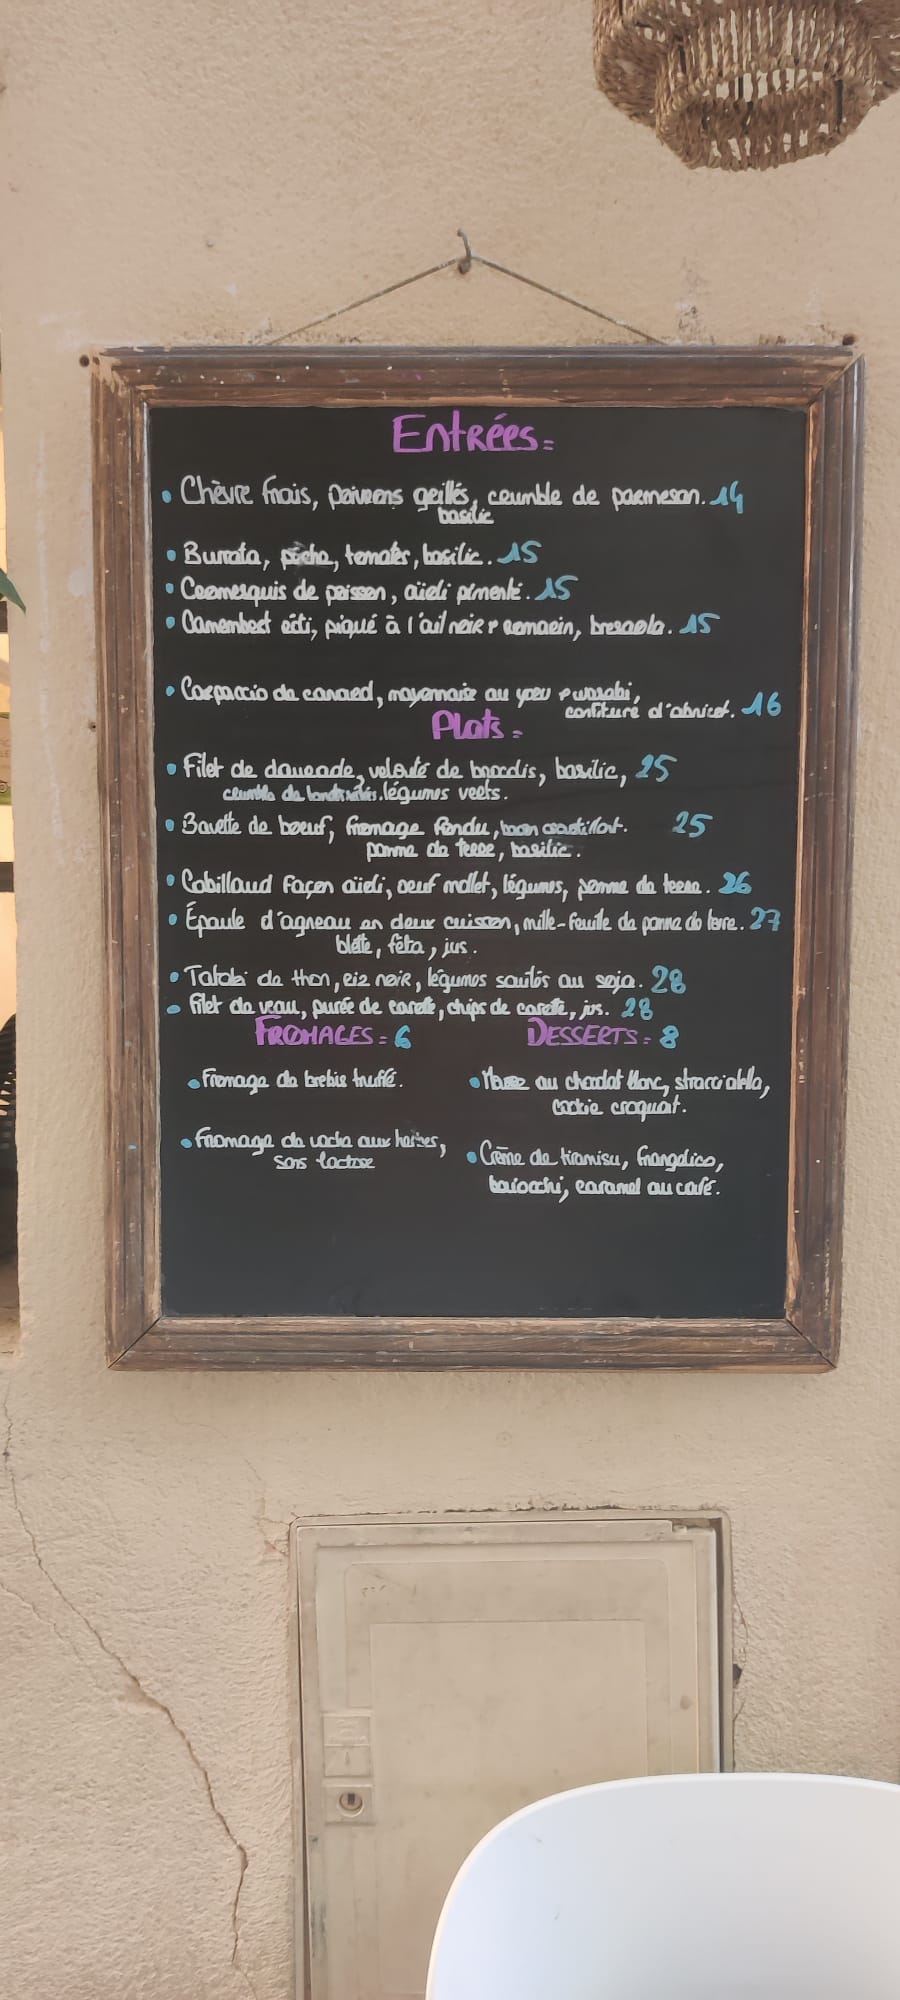 Entrées =
• Chèvre frais, poivrons grillés, crumble de parmesan. 14
basilic
• Burrata, pêche, tomates, basilic. 15
• Cromesquis de poisson, aïoli pimenté. 15
• Camembert rôti, piqué à l'ail noir + romarin, bresaola. 15
• Carpaccio de canard, mayonnaise au yuzu + wasabi,
confiture d'abricot. 16
Plats =
• Filet de daurade, velouté de brocolis, basilic, 25
crumble de légumes verts.
• Bavette de boeuf, fromage fondu, 25
pomme de terre, basilic.
• Cabillaud façon aïoli, oeuf mollet, légumes, pomme de terre. 26
• Épaule d'agneau en deux cuisson, mille-feuille de pomme de terre. 27
blette, féta, jus.
• Tataki de thon, riz noir, légumes sautés au soja. 28
• Filet de veau, purée de carotte, chips de carotte, jus. 28
FROMAGES = 6
• Fromage de brebis truffé.
• Fromage de vache aux herbes,
sans lactose
DESSERTS = 8
• Mousse au chocolat blanc, stracciatella,
cookie croquant.
• Crème de tiramisu, frangelico,
baiocchi, caramel au café.